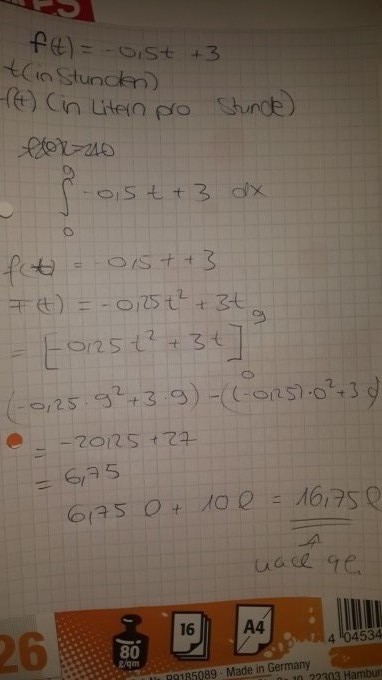 f(t) = -0,5t + 3
t (in Stunden)
f(t) (in Litern pro Stunde)
9
∫ -0,5 t + 3 dx
0
f(t) = -0,5 t + 3
F(t) = -0,25t² + 3t
= [-0,25 t² + 3t]
9
0
(-0,25 · 9² + 3 · 9) - ((-0,25) · 0² + 3 · 0)
= -20,25 + 27
= 6,75
6,75 l + 10 l = 16,75 l
26
80
g/qm
16
A4
4 04534
99185089 · Made in Germany
22303 Hambur